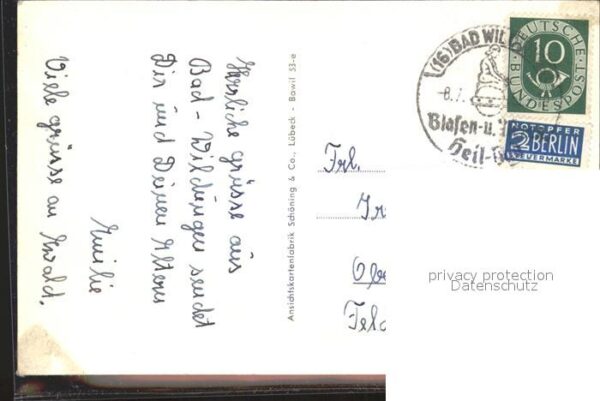 Herzliche grüsse aus
Bad-Wildungen sendet
Dir und Deinen Eltern
Emilie
Viele grüsse an Ewald.
Ansichtskartenfabrik Schöning & Co., Lübeck - Bawil 53-e
(16) BAD WIL
8.7.
Blasen-u.
Heil-
DEUTSCHE
BUNDESPOST
10
NOTOPFER
2 BERLIN
STEUERMARKE
Frl.
privacy protection
Datenschutz